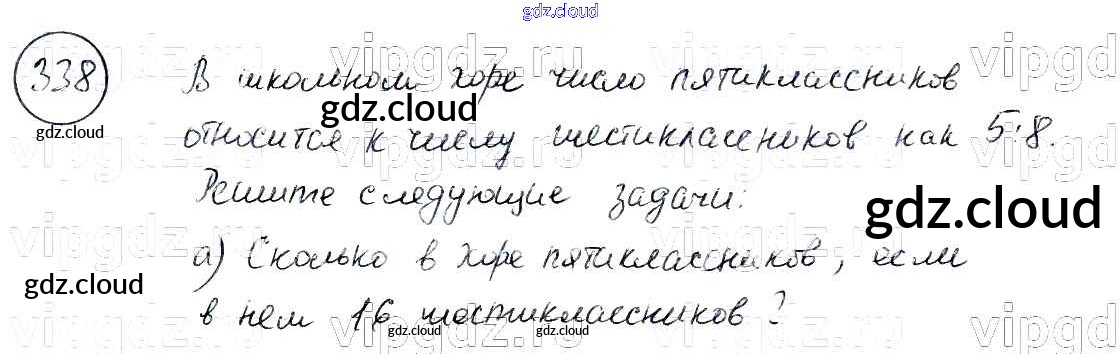 gdz.cloud
vipgdz.ru
338 В школьном хоре число пятиклассников
gdz.cloud
gdz.cloud относится к числу шестиклассников как 5:8.
Решите следующие задачи:
gdz.cloud
а) Сколько в хоре пятиклассников, если
gdz.cloud
в нем 16 шестиклассников?
gdz.cloud gdz.cloud